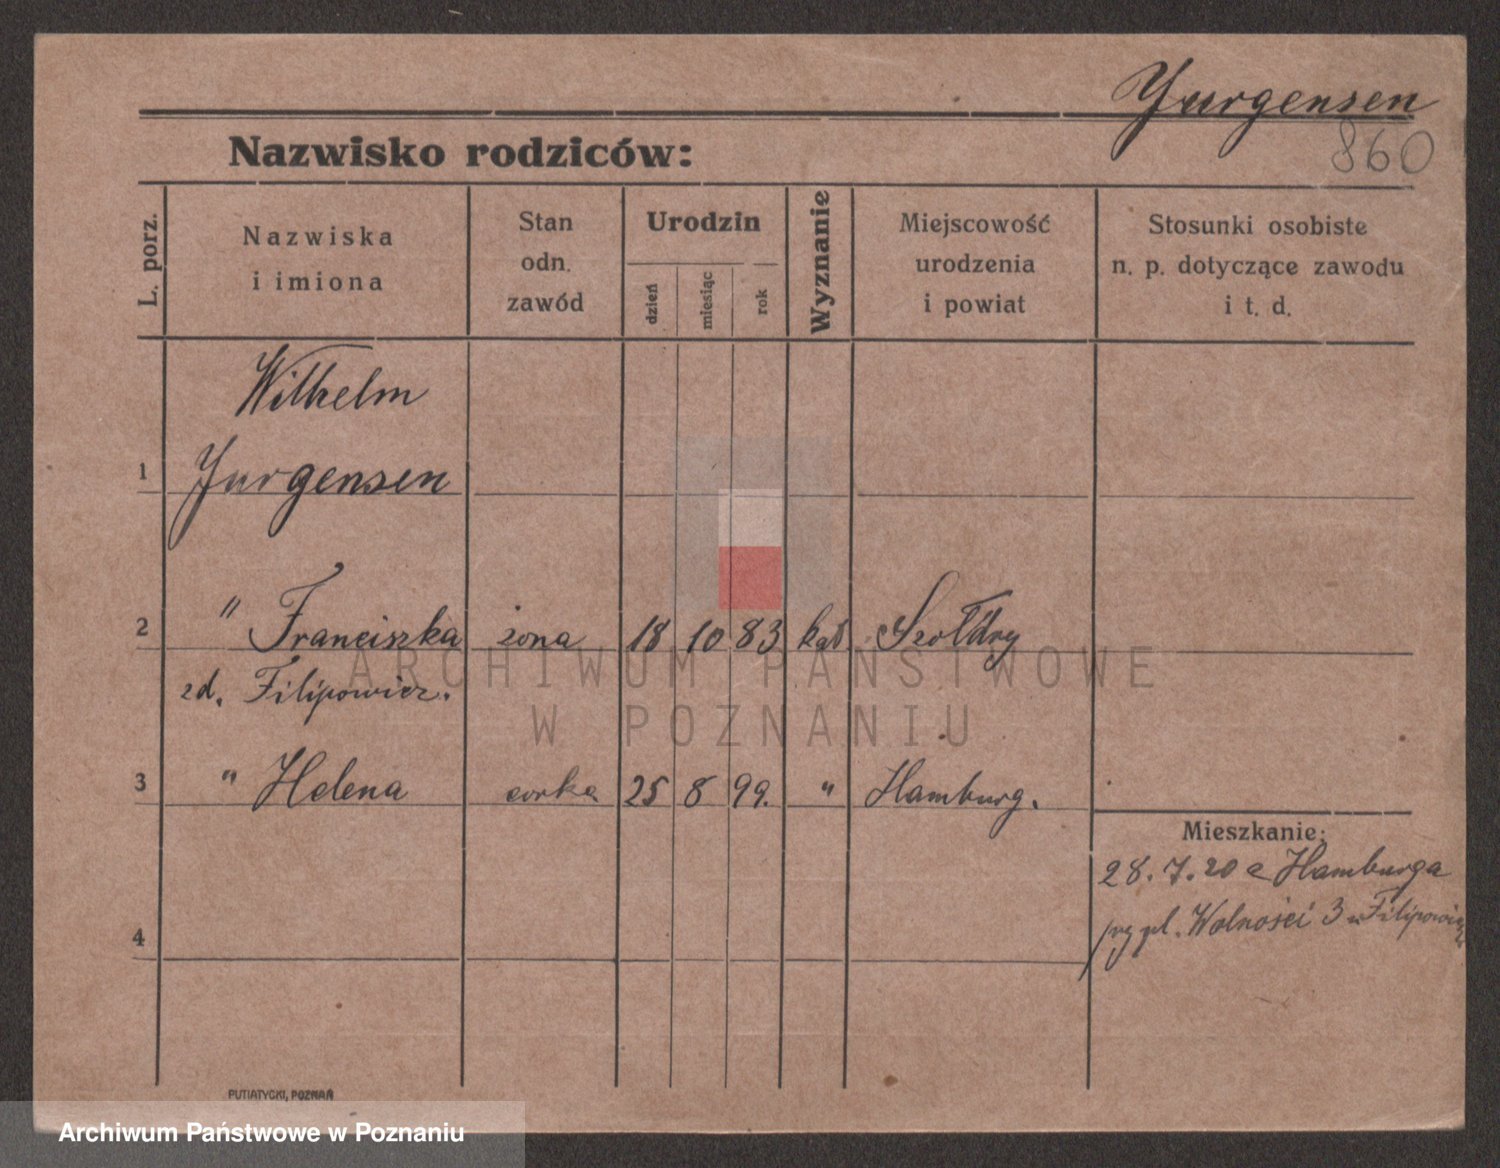 Yurgensen
860
Nazwisko rodziców:
L. porz.
Nazwiska
i imiona
Stan
odn.
zawód
Urodzin
dzień
miesiąc
rok
Wyznanie
Miejscowość
urodzenia
i powiat
Stosunki osobiste
n. p. dotyczące zawodu
i t. d.
Wilhelm
1 Yurgensen
2 " Franciszka żona 18 10 83 kat Szołdry
zd. Filipowicz.
3 " Helena corka 25 8 99. " Hamburg.
Mieszkanie:
28. 7. 20 z Hamburga
pl. Wolności 3 Filipowicz
4
ARCHIWUM PAŃSTWOWE
W POZNANIU
PUTIATYCKI, POZNAŃ
Archiwum Państwowe w Poznaniu